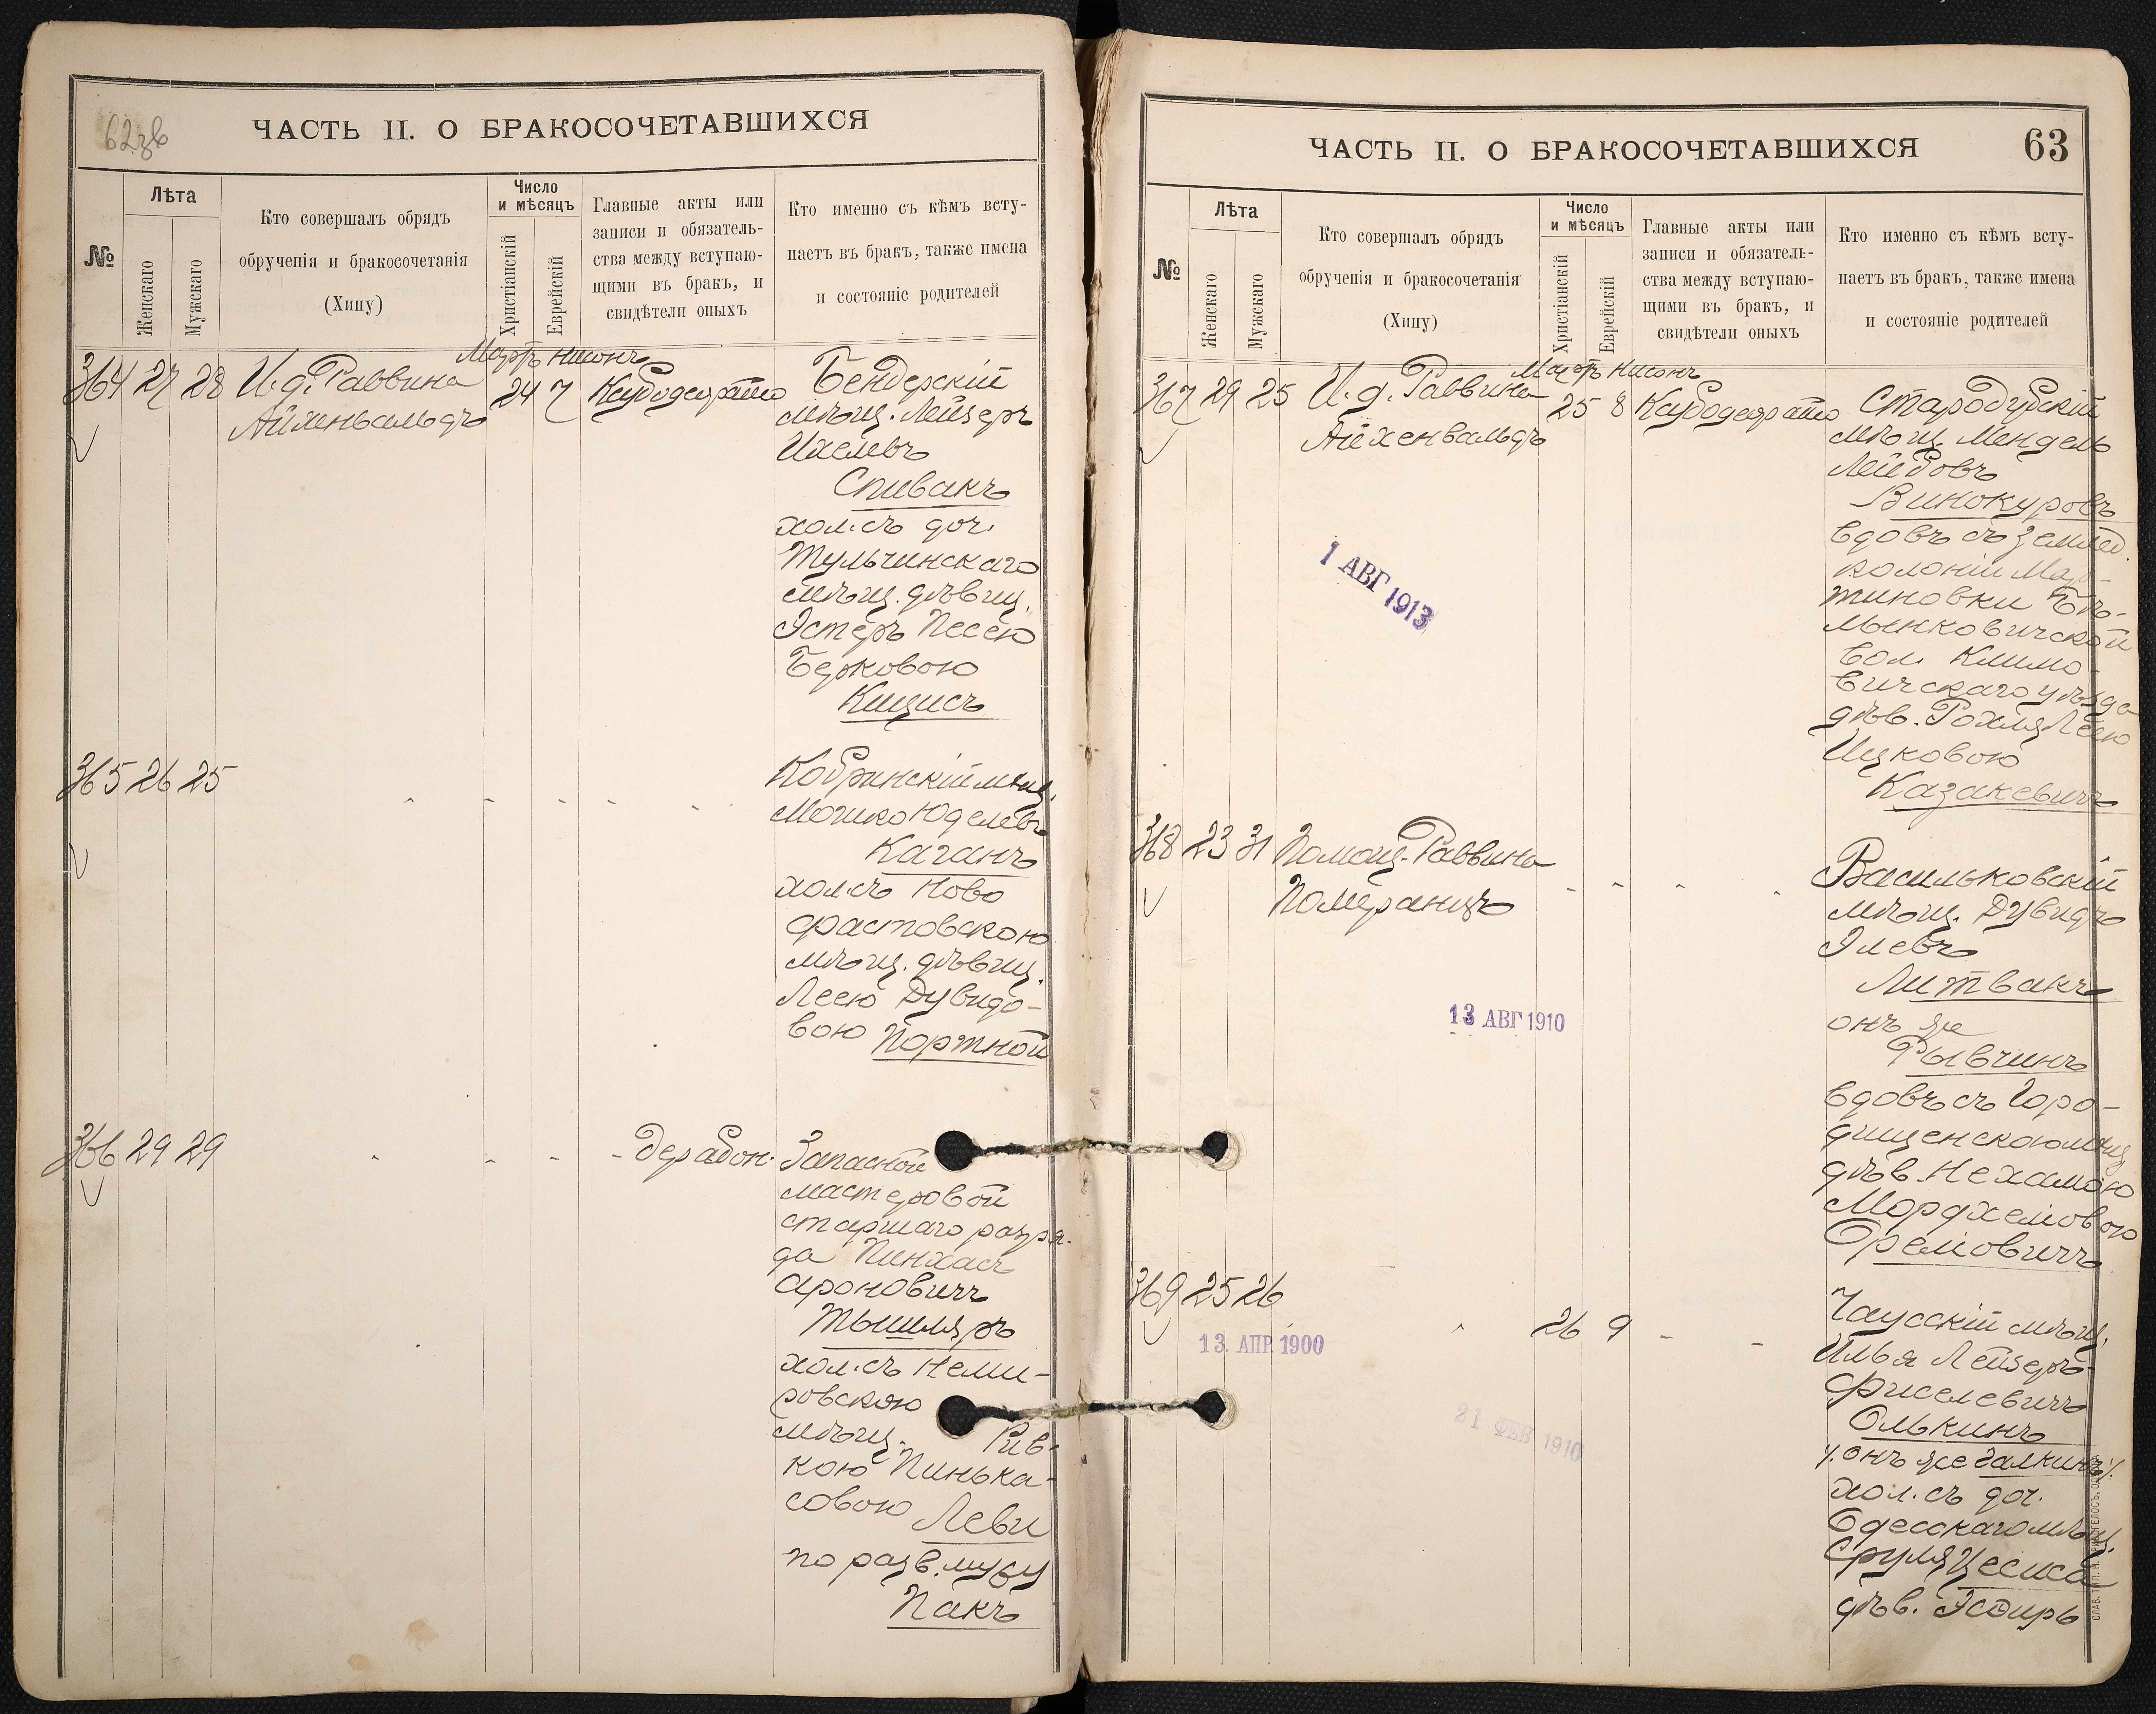 62об
ЧАСТЬ II. О БРАКОСОЧЕТАВШИХСЯ
№
Лѣта
Женскаго
Мужскаго
Кто совершалъ обрядъ
обрученія и бракосочетанія
(Хипу)
Число
и мѣсяцъ
Христіанскій
Еврейскій
Главные акты или
записи и обязатель-
ства между вступаю-
щими въ бракъ, и
свидѣтели оныхъ
Кто именно съ кѣмъ всту-
паетъ въ бракъ, также имена
и состояніе родителей
Мартъ Нисонъ
364 27 28 И. д. Раввина 24 7
Айхенвальдъ
Бендерскій
мѣщ. Лейзеръ
Ихелевъ
Спивакъ
хол. съ доч.
Тульчинскаго
мѣщ. дѣвиц.
Эстеръ Песею
Берковою
Кицисъ
365 26 25
Кобринскій мѣщ.
Мошко Юделевъ
Каганъ
хол. съ Ново
фастовскою
мѣщ. дѣвиц.
Леею Дувидо-
вою Портной
366 29 29 - Дерабон.
Запасной
мастеровой
старшаго разря-
да Пинхасъ
Ароновичъ
Тышляръ
хол. съ Неми-
ровскою
мѣщ. Рив-
кою Пинька-
совою Леви
по разв. мужу
Пакъ
ЧАСТЬ II. О БРАКОСОЧЕТАВШИХСЯ
63
№
Лѣта
Женскаго
Мужскаго
Кто совершалъ обрядъ
обрученія и бракосочетанія
(Хипу)
Число
и мѣсяцъ
Христіанскій
Еврейскій
Главные акты или
записи и обязатель-
ства между вступаю-
щими въ бракъ, и
свидѣтели оныхъ
Кто именно съ кѣмъ всту-
паетъ въ бракъ, также имена
и состояніе родителей
Мартъ Нисонъ
367 29 25 И. д. Раввина 25 8
Айхенвальдъ
Стародубскій
мѣщ. Мендель
Лейбовъ
Винокуровъ
вдовъ съ землед.
колоніи Мар-
тиновки Бѣ-
лынковичской
вол. Климо-
вичскаго уѣзда
дѣв. Рохля Леею
Ицковою
Казакевичъ
1 АВГ 1913
368 23 31 Помощ. Раввина
Померанцъ
Васильковскій
мѣщ. Дувидъ
Элевъ
Литвакъ
онъ же
Рывчинъ
вдовъ съ Горо-
дищенскою мѣщ.
дѣв. Нехамою
Мордхелювою
Орелювичъ
13 АВГ 1910
369 25 26
26 9 - -
13. АПР. 1900
21 ФЕВ 1910
Чаусскій мѣщ.
Илья Лейзеръ-
Фиселевичъ
Олькинъ
/. онъ же Галкинъ ./
хол. съ доч.
Одесскаго мѣщ.
Сруля Цесиса
дѣв. Эсѳирь